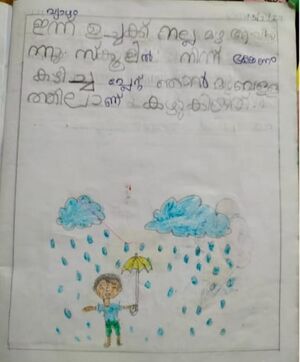 വ്യാഴം
ഇന്ന് ഉച്ചക്ക് നല്ല മഴ ആയിരു
ന്നു. സ്കൂളിൽ നിന്ന് ഭക്ഷണം
കഴിച്ച പ്ലേറ്റ് ഞാൻ മഴവെള്ള
ത്തിലാണ് കഴുകിയത്.